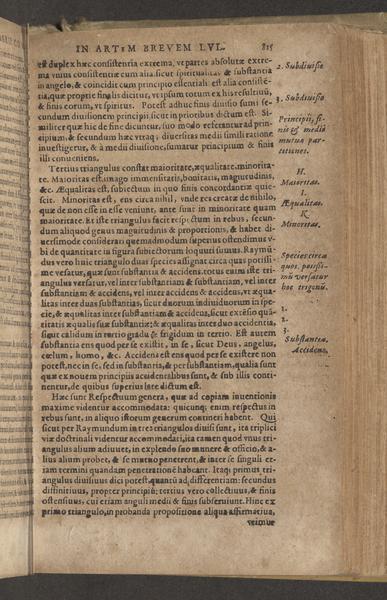 IN ARTEM BREVEM LVL. 815
est duplex hæc consistentia extrema, vt partes absolutæ extre-
ma vnius consistentiæ cum alia. sicut spiritualitas & substantia
in angelo, & coincidit cum principio essentiali: est alia consistẽ-
tia, quæ proprie finalis dicitur, vt ipsum totum ex his resultãs,
& finis eorum, vt spiritus. Potest adhuc finis diuisio sumi se-
cundum diuisionem principii, sicut in prioribus dictum est. Si-
militer quæ hic de fine dicuntur, suo modo referantur ad prin-
cipium, & secundum hæc vtraq; diuersitas medii simili ratione
inuestigetur, & à medii diuisione, sumatur principium & finis
illi conueniens.
Tertius triangulus constat maioritate, æqualitate, minorita-
te. Maioritas est imago immensitatis, bonitatis, magnitudinis,
&c. Æqualitas est, subiectum in quo finis concordantiæ quie-
scit. Minoritas est, ens circa nihil, vnde res creatæ de nihilo,
quæ de non esse in esse veniunt, ante sunt in minoritate quam
maioritate. Et iste triangulus facit respectum in rebus, secun-
dum aliquod genus magnitudinis & proportionis, & habet di-
uersimode considerari quemadmodum superius ostendimus v-
bi de quantitate in figura subiectorum loquuti sumus. Raymũ-
dus vero huic triangulo duas species assignat circa quas potissi-
me versatur, quæ sunt substantia & accidens. totus enim iste tri-
angulus versatur, vel inter substantiam & substantiam, vel inter
substantiam & accidens, vel inter accidens & accidens, vt æqua-
litas inter duas substantias, sicut duorum indiuiduorum in spe-
cie, & æqualitas inter substantiam & accidens, sicut extẽsio quã-
titatis æqualis suæ substantiæ: & æqualitas inter duo accidentia,
sicut calidum in tertio gradu & frigidum in tertio. Est autem
substantia ens quod per se existit, in se, sicut Deus, angelus,
cœlum, homo, &c. Accidens est ens quod per se existere non
potest, nec in se, sed in substantia, & per substantiam, qualia sunt
quæ ex nouem principiis accidentalibus sunt, & sub illis conti-
nentur, de quibus superius late dictum est.
Hæc sunt Respectuum genera, quæ ad copiam inuentionis
maxime videntur accommodata: quicunq; enim respectus in
rebus sunt, in aliquo istorum generum contineri habent. Qui
sicut per Raymundum in tres triangulos diuisi sunt, ita triplici
viæ doctrinali videntur accommodari, ita tamen quod vnus tri-
angulus alium adiuuet, in explendo suo munere & officio, & a-
lius alium probet, & se mutuo penetrent, & inter se singuli et-
iam termini quandam penetrationẽ habeant. Itaq; primus tri-
angulus diuisiuus dici potest, quantũ ad differentiam: secundus
diffinitiuus, propter principiũ: tertius vero collectiuus, & finis
ostensiuus, cui etiam anguli medii & finis subseruiunt. Hinc ex
primo triangulo, in probanda propositione aliqua affirmatiua,
vtimur
2. Subdiuisio
3. Subdiuisio
Principii, fi-
nis & medii
mutua par-
titiones.
H.
Maioritas.
I.
Æqualitas.
K.
Minoritas.
Species circa
quas potissi-
mũ versatur
hoc trigonũ.
1.
2.
3.
Substantia.
Accidens.